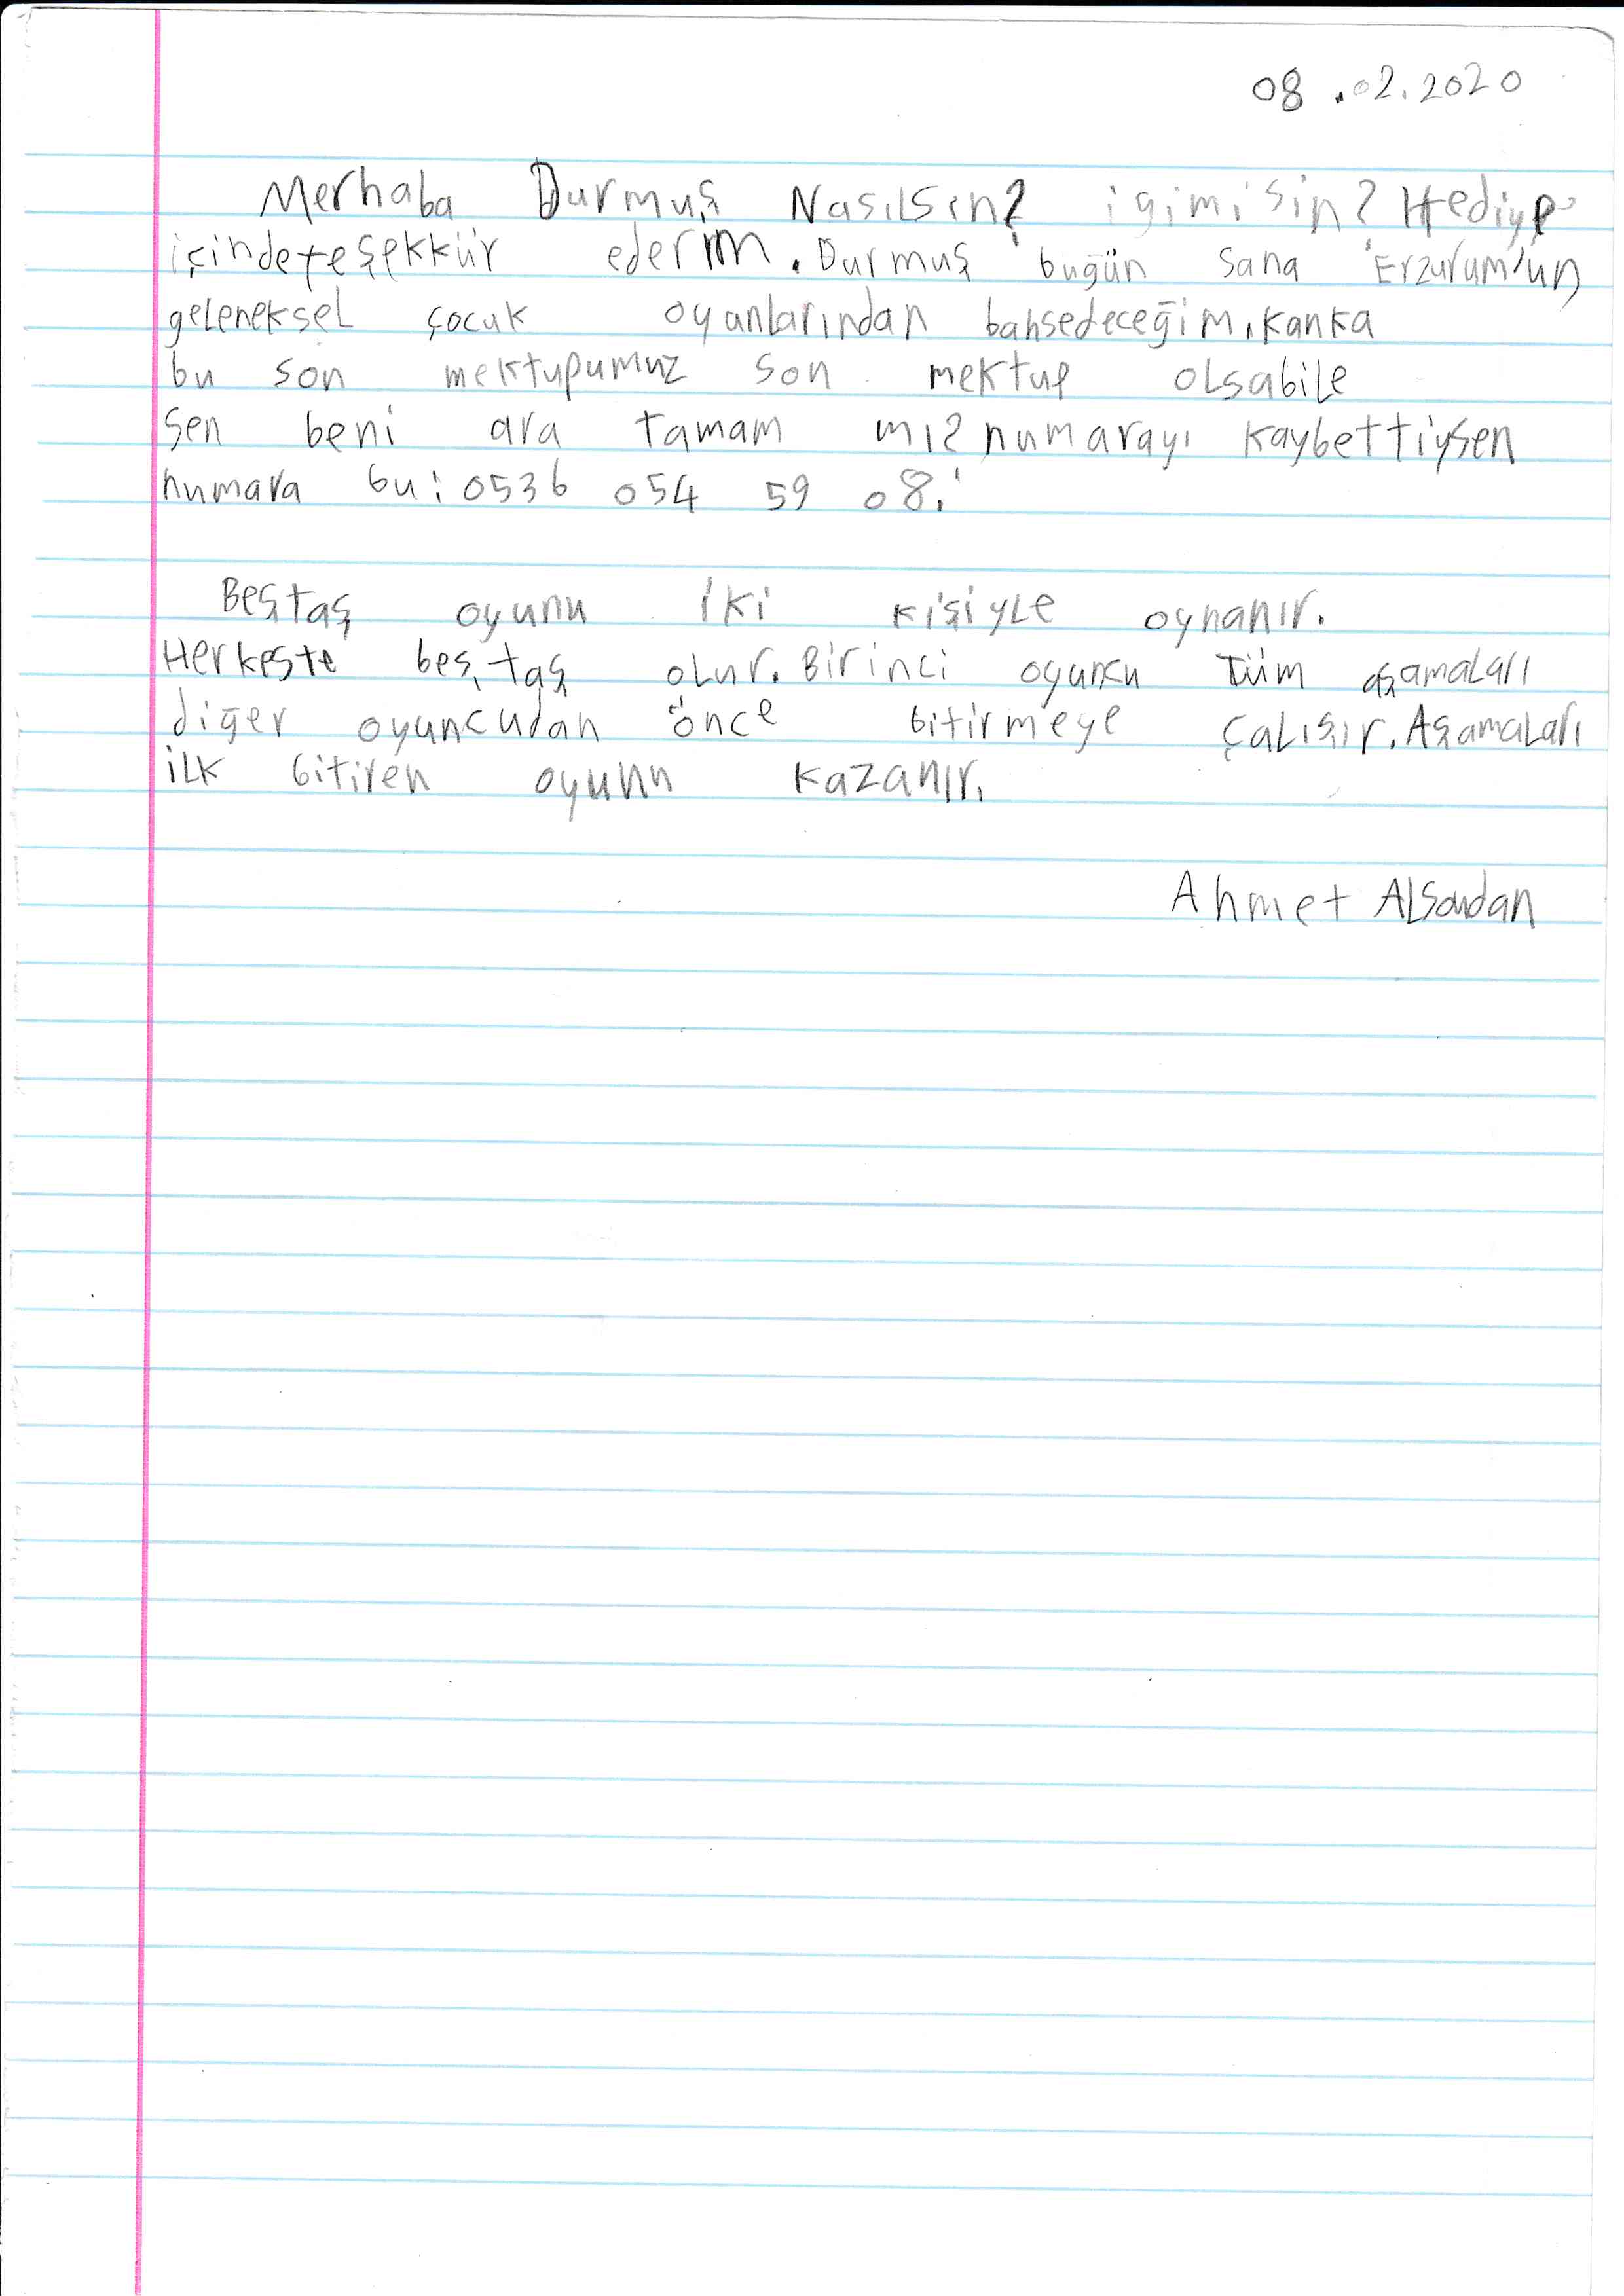 08.02.2020
Merhaba Durmuş Nasılsın? iyimisin? Hediye
içindeteşekkür ederim. Durmuş bugün sana Erzurum'un
geleneksel çocuk oyunlarından bahsedeceğim. kanka
bu son mektupumuz son mektup olsabile
sen beni ara tamam mı? numarayı kaybettiysen
numara bu: 0536 054 59 08.
Beştaş oyunu iki kişiyle oynanır.
Herkeste beş taş olur. Birinci oyuncu tüm aşamaları
diğer oyuncudan önce bitirmeye çalışır. Aşamaları
ilk bitiren oyunu kazanır.
Ahmet